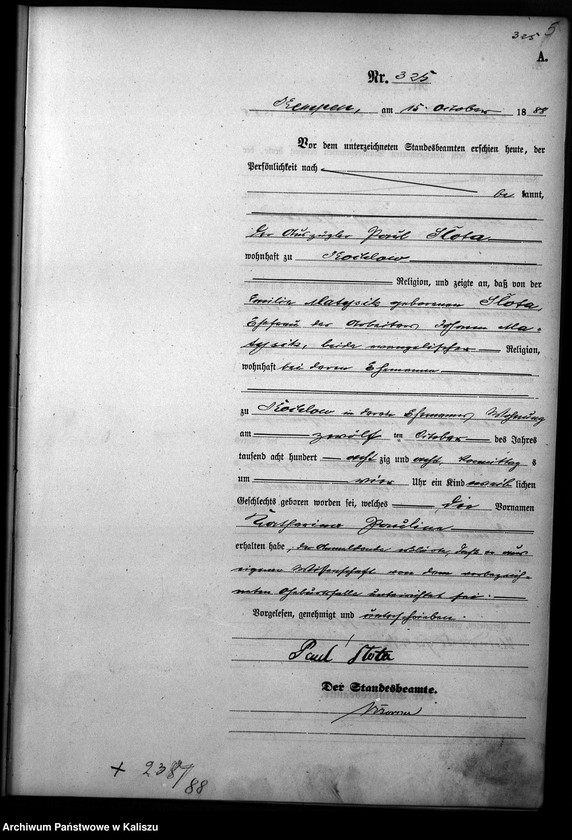 325 5
A.
Nr. 325
Kempen, am 15. October 1888
Vor dem unterzeichneten Standesbeamten erschien heute, der
Persönlichkeit nach
be kannt,
der Auszügler Paul Slota
wohnhaft zu Kochlow
Religion, und zeigte an, daß von der
Emilie Matysik geborenen Slota,
Ehefrau des Arbeiters Johann Ma-
tysik, beide evangelischer Religion,
wohnhaft bei deren Ehemanne
zu Kochlow in deren Ehemannes Wohnung
am zwölf ten October des Jahres
tausend acht hundert acht zig und acht, Vormittag s
um vier Uhr ein Kind weib lichen
Geschlechts geboren worden sei, welches die Vornamen
Katharina Pauline
erhalten habe, der Anmeldende erklärte, daß er aus
eigener Wissenschaft von dem vorbezeich-
neten Geburtsfalle unterrichtet sei.
Vorgelesen, genehmigt und unterschrieben.
Paul Slota
Der Standesbeamte.
+ 238/88
Archiwum Państwowe w Kaliszu